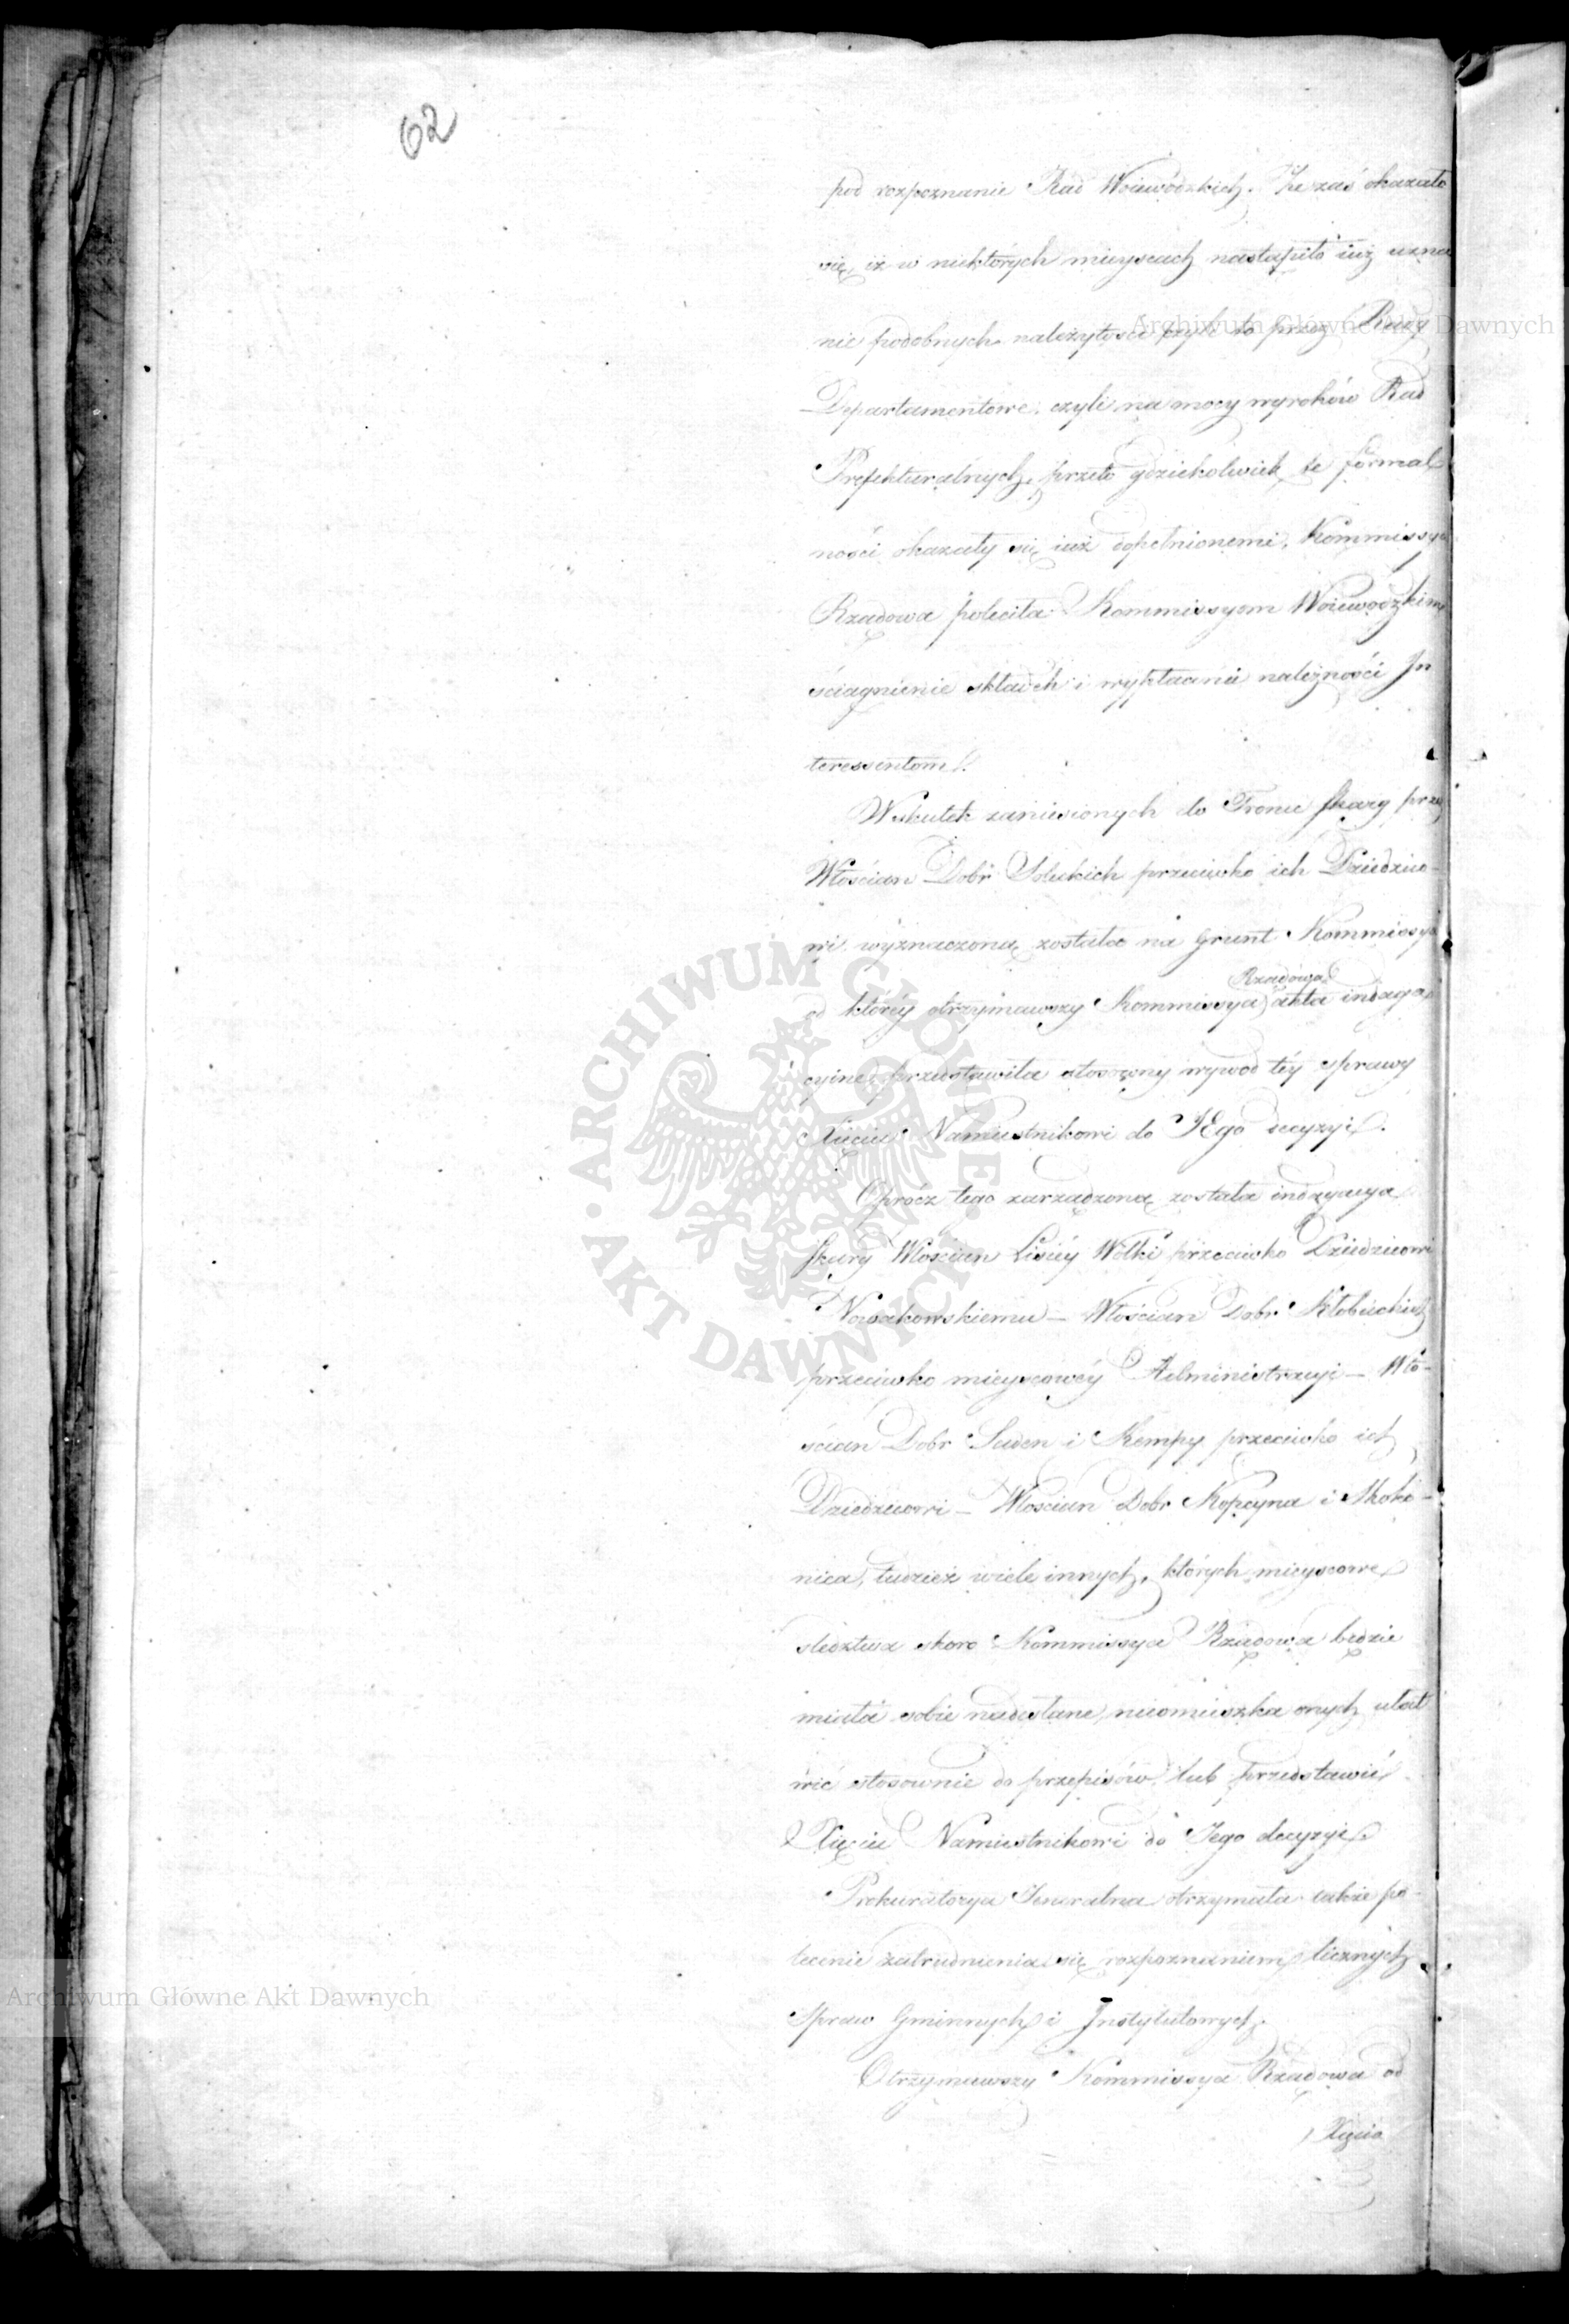 62
pod rozpoznanie Rad Woiewódzkich. Że zaś okazało
się, iż w niektórych mieyscach nastąpiło iuż uzna
nie podobnych należytości czyli to przez Rady
Departamentowe, czyli na mocy wyroków Rad
Prefekturalnych, przeto gdziekolwiek te formal
ności okazały się iuż dopełnionemi, Kommissya
Rządowa poleciła Kommissyom Woiewódzkim
ściągnienie składek i wypłacenie należności In
teressentom.
Wskutek zaniesionych do Tronu skarg przez
Włościan Dobr Soleckich przeciwko ich Dziedzico-
wi wyznaczoną została na grunt Kommissya
od któréy otrzymawszy Kommissya Rządowa akta indaga
cyine, przedstawiła stosowny wywod téy sprawy
Xięciu Namiestnikowi do JEgo decyzyi.
Oprócz tego zarządzoną została indagacya
skargi Włościan Lisiéy Wólki przeciwko Dziedzicowi
Nowakowskiemu – Włościan Dobr Kłobuckich
przeciwko mieyscowéy Administracyi – Wło-
ścian Dobr Saden i Kempy przeciwko ich
Dziedzicowi – Włościan Dobr Kopcyna i Moko-
nica, tudzież wiele innych, których mieyscowe
śledztwa skoro Kommissya Rządowa będzie
miała sobie nadesłane, nieomieszka onych ułat
wić stosownie do przepisów lub przedstawić
Xięciu Namiestnikowi do Jego decyzyi.
Prokuratorya Jeneralna otrzymała także po-
lecenie zatrudnienia się rozpoznaniem licznych
Spraw Gminnych i Instytutowych.
Otrzymawszy Kommissya Rządowa od
Xięcia
Archiwum Główne Akt Dawnych
ARCHIWUM GŁÓWNE AKT DAWNYCH
Archiwum Główne Akt Dawnych